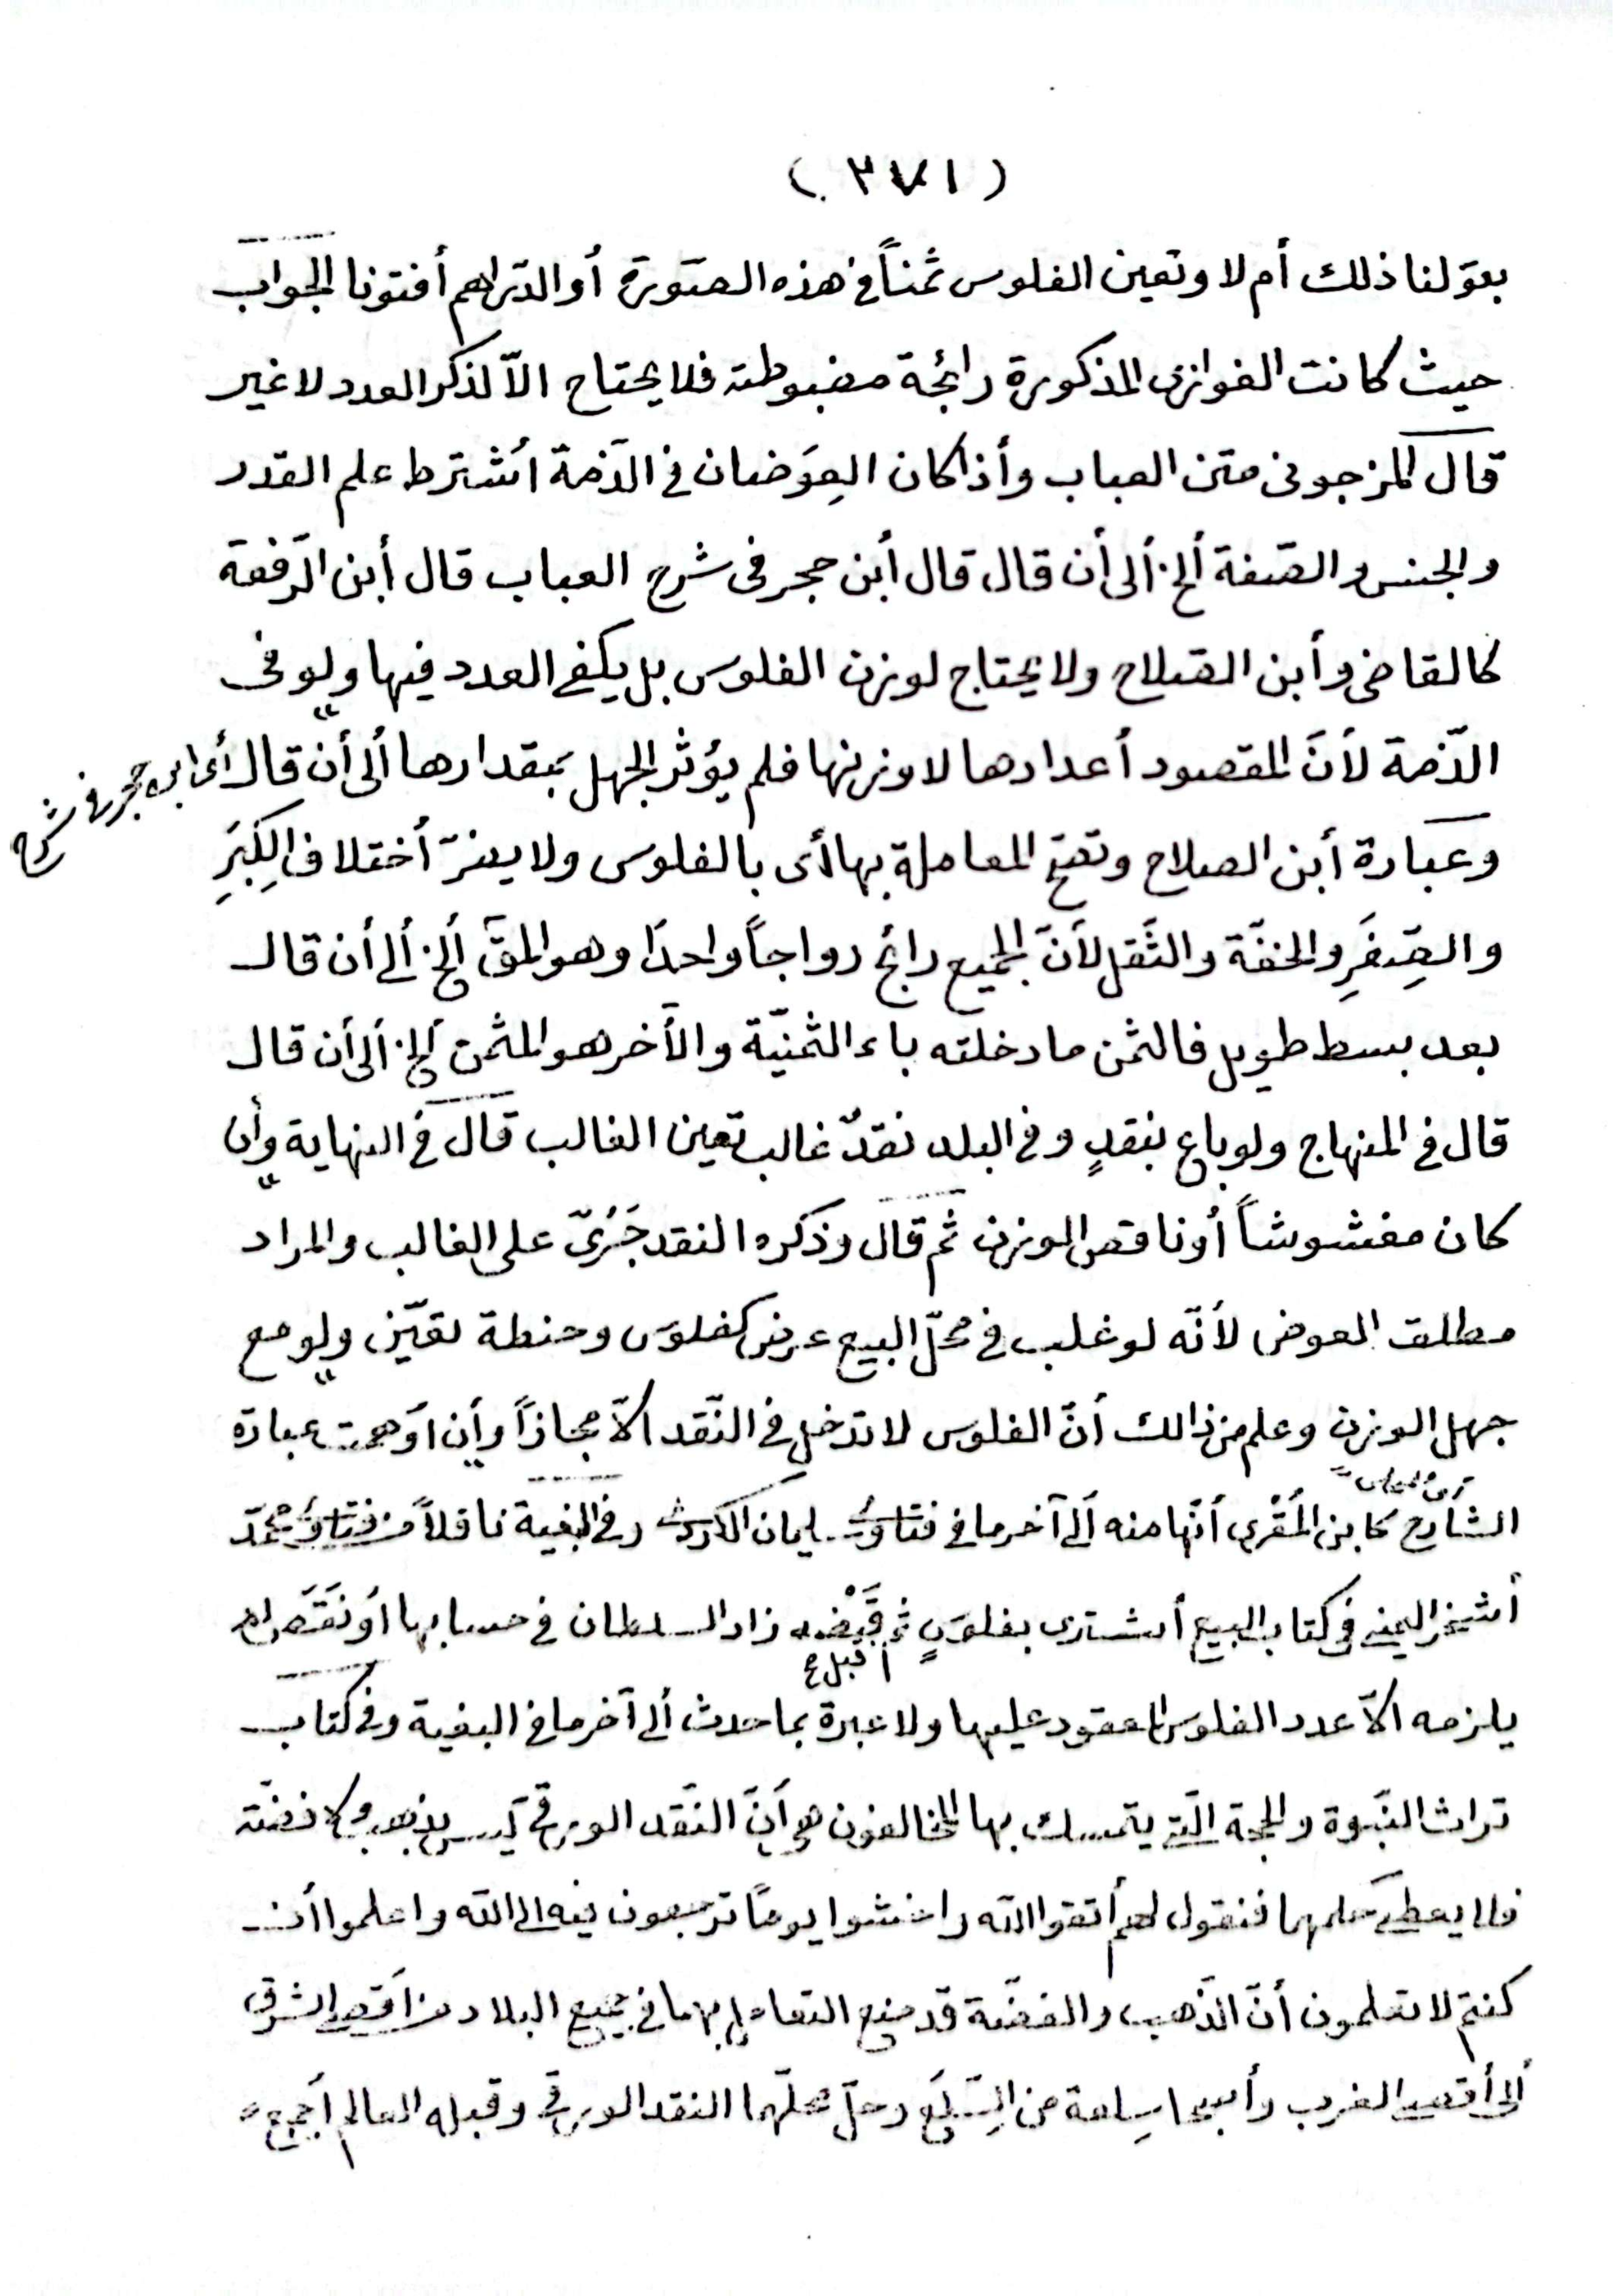 (٣٧١)
بقولنا ذلك أم لا وتعين الفلوس ثمناً في هذه الصّورة أو الدّراهم أفتونا الجواب
حيث كانت الغوازى المذكورة رائجة مضبوطة فلا يحتاح الاّ لذكر العدد لا غير
قال المزجونى متن العباب وأذا كان العِوَضان في الذّمة اُشترط علم القدر
والجنس والصّفة ألخ ألى أن قال قال أبن حجر فى شرح العباب قال أبن الرّفعة
كالقاضى وأبن الصّلاح ولا يحتاج لوزن الفلوس بل يكفى العدد فيها ولو فى
الذّمة لأنّ المقصود أعدادها لا وزنها فلم يؤثر الجهل بمقدارها ألى أن قال أى ابن حجر فى شرحه
وعبارة أبن الصلاح وتصح المعاملة بها أى بالفلوس ولا يضرّ أختلاف الكِبَرِ
والصِّغَرِ والخفّة والثّقل لأنّ الجميع رائج رواجاً واحدًا وهو المقّ ألخ ألى أن قال
بعد بسط طويل فالثمن ما دخلته باء الثمنيّة والآخر هو المثمن ألخ ألى أن قال
قال في المنهاج ولو باع بنقدٍ وفي البلد نقدٌ غالب تعين الغالب قال في النهاية وأن
كان مغشوشاً أو ناقص الوزن ثم قال وذكره النقد جَرْىٌ على الغالب والمراد
مطلق العوض لأنّه لو غلب في محلّ البيع عرض كفلوس وحنطة تعيّن ولو مع
جهل الوزن وعلم من ذالك أنّ الفلوس لا تدخل في النّقد الاّ مجازاً وأن اَوهمت عبارة
الشارح كابن المُقْرى أنّها منه ألى آخر ما في فتاوى سليمان الكردى وفي البغية ناقلاً من فتاوى محمّد
أشخر اليمنى في كتاب البيع أشترى بفلوسٍ ثم قَبْضه زاد السلطان في حسابها أو نَقَصَ لم
قبل
يلزمه الاّ عدد الفلوس المعقود عليها ولا عبرة بما حدث ألى آخر ما في البغية وفي كتاب
تراث النّبوة والحجة الّتى يتمسك بها المخالفون هى أنّ النّقد الورقى ليس بذهب ولا فضّة
فلا يعطى حكمهما فنقول لهم أتقوا الله واخشوا يوماً ترجعون فيه الى الله واعلموا أن
كنتم لا تعلمون أنّ الذّهب والفضّة قد منع التعامل بهما في جميع البلاد من اَقصى الشرق
ألى أقصى الغرب وأصبحا سِلعة من السِّلَع وحلّ محلّهما النقد الورقى وقبله العالم أجمع